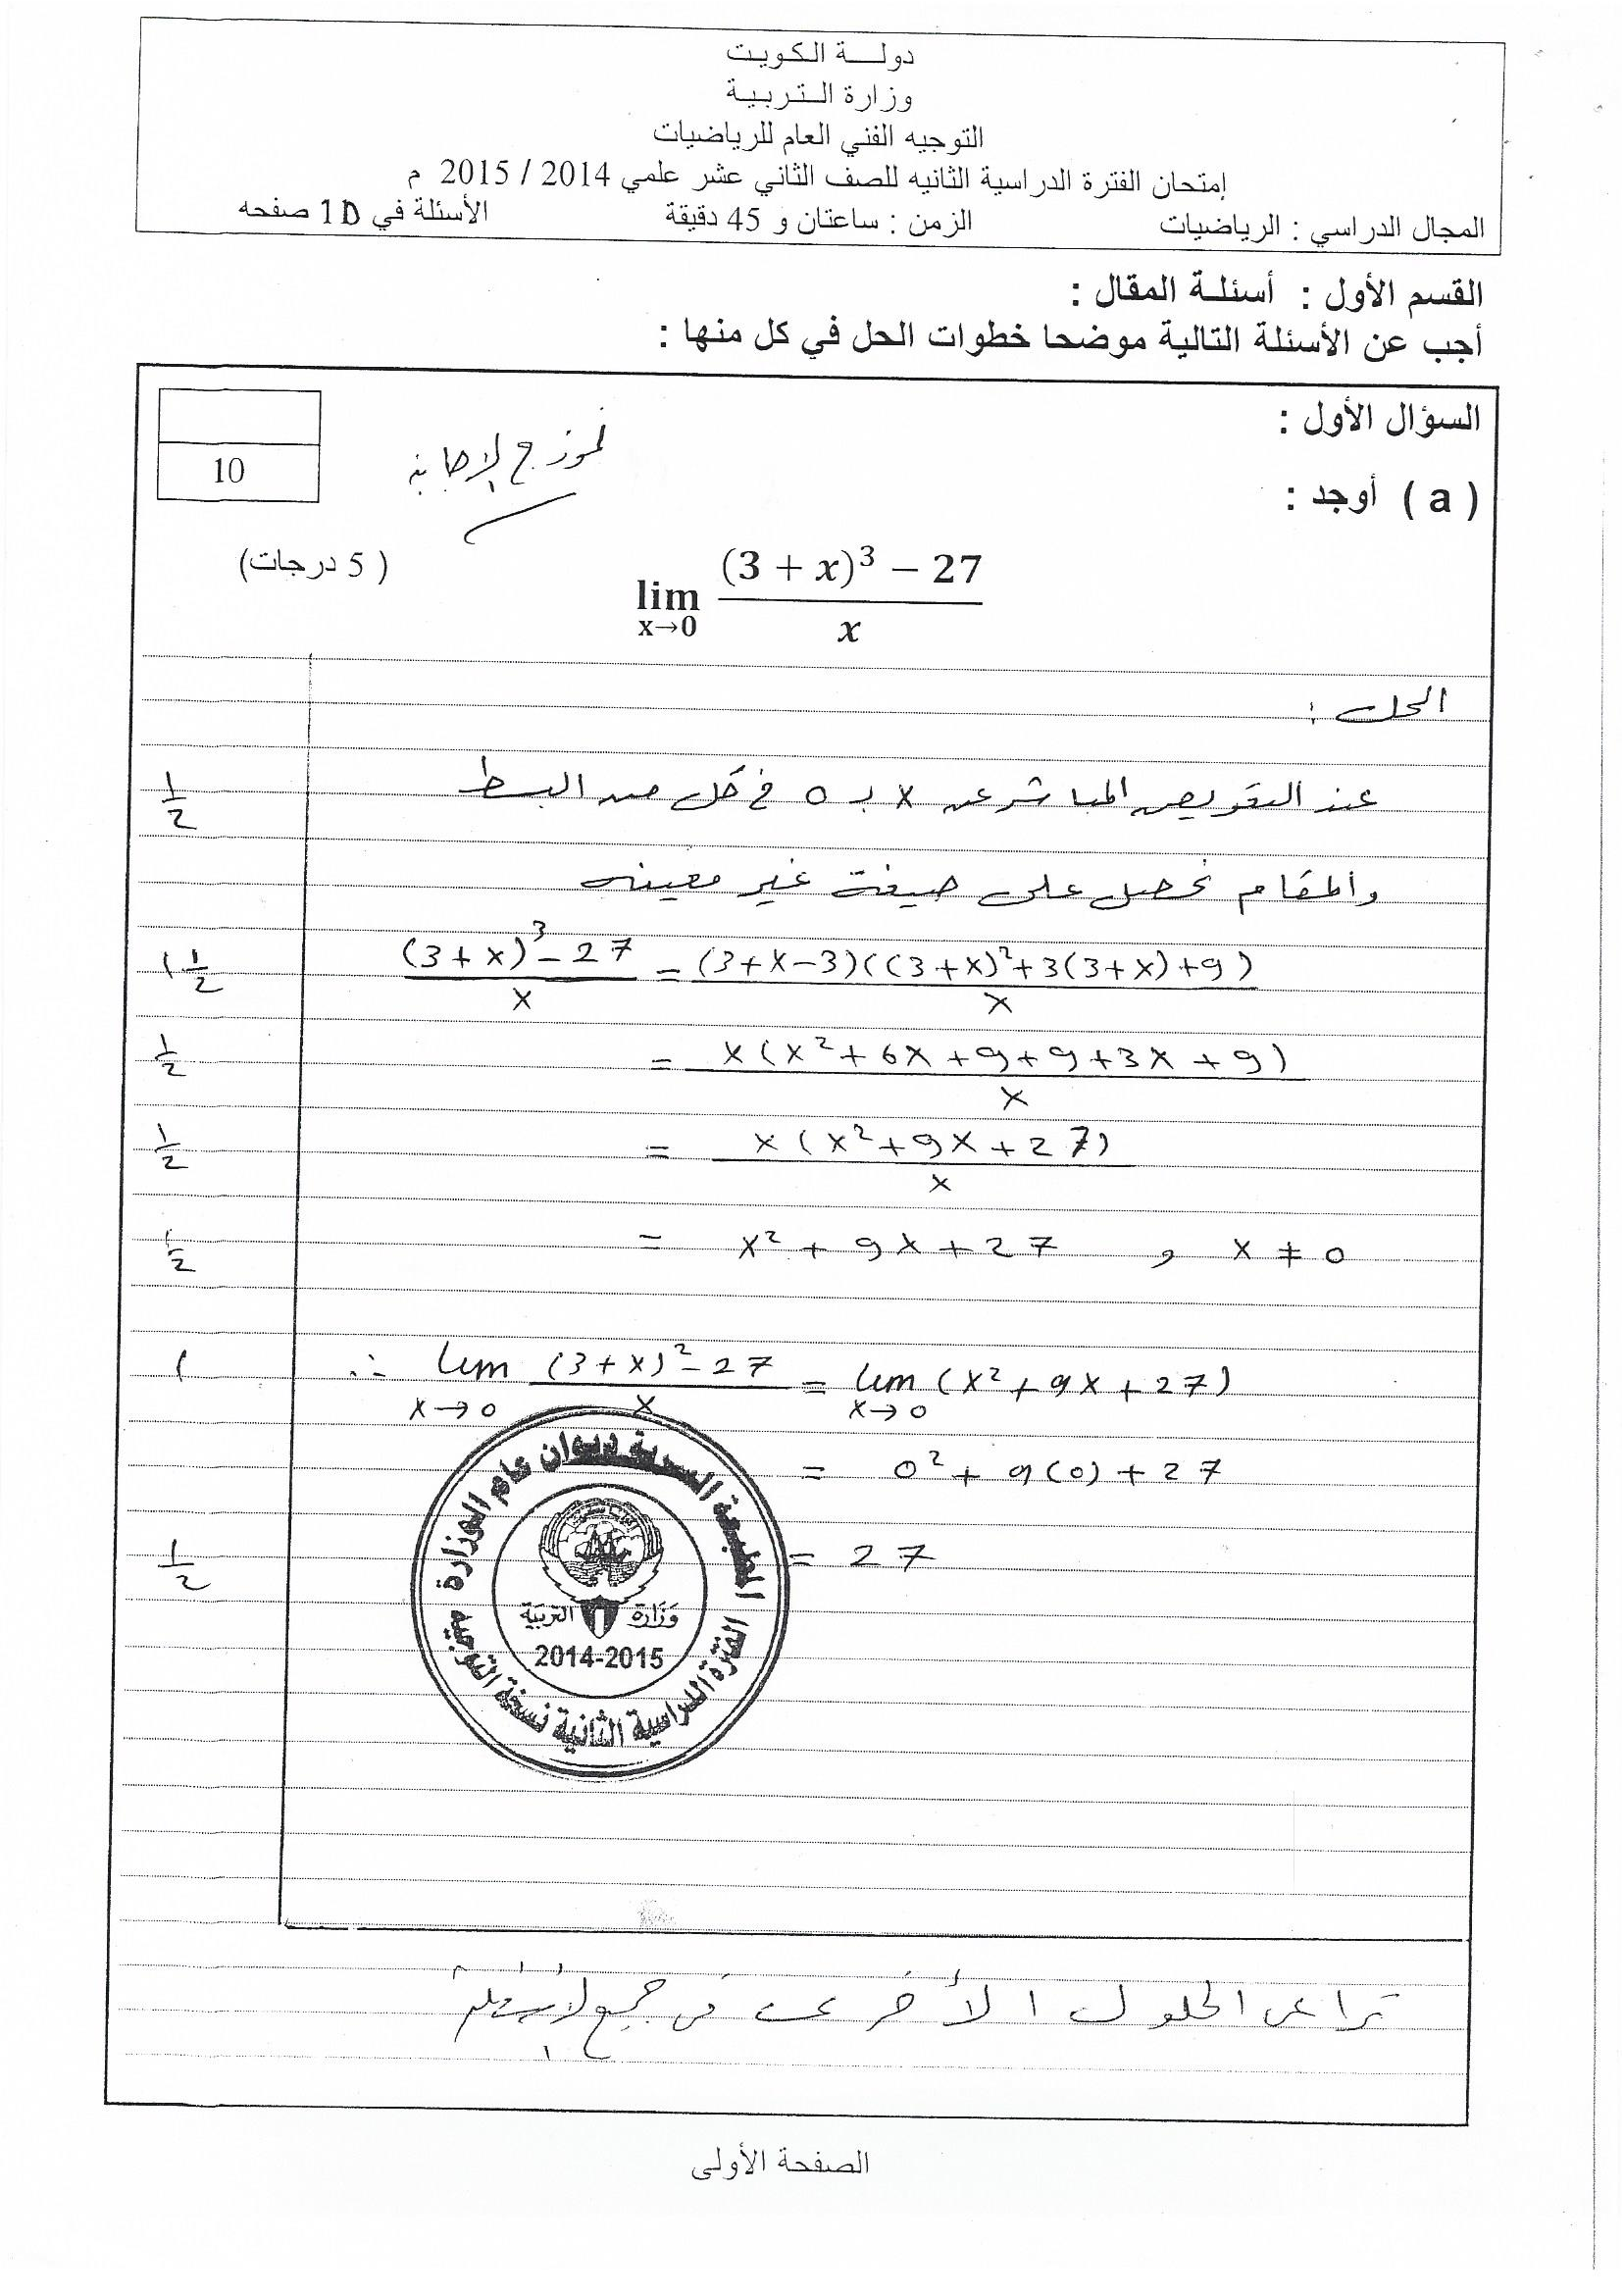 دولـــة الـكويـت
وزارة الـتـربـيـة
التوجيه الفني العام للرياضيات
إمتحان الفترة الدراسية الثانيه للصف الثاني عشر علمي 2014 / 2015 م
المجال الدراسي : الرياضيات الزمن : ساعتان و 45 دقيقة الأسئلة في 10 صفحه
القسم الأول : أسئلـة المقال :
أجب عن الأسئلة التالية موضحا خطوات الحل في كل منها :
السؤال الأول :
نموذج الإجابة
10
( a ) أوجد :
lim x→0 ((3 + x)³ − 27) / x ( 5 درجات)
الحل :
عند التعويض المباشر عن x بـ 0 في كل من البسط 1/2
والمقام نحصل على صيغة غير معينه
((3+x)³ − 27) / x = (3+x−3)((3+x)²+3(3+x)+9) / x 1 1/2
= x(x²+6x+9+9+3x+9) / x 1/2
= x(x²+9x+27) / x 1/2
= x² + 9x + 27 , x ≠ 0 1/2
∴ lim x→0 ((3+x)² − 27) / x = lim x→0 (x²+9x+27) 1
= 0² + 9(0) + 27
= 27 1/2
المطبعة السرية ديوان عام الوزارة
وزارة التربية
2014-2015
الفترة الدراسية الثانية نسخة التوجيه
تراعى الحلول الأخرى في جميع الأسئلة
الصفحة الأولى